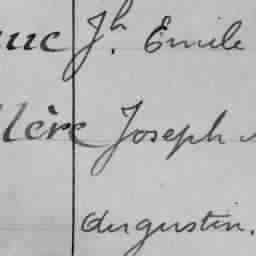 Jh. Emile
lère Joseph
Augustin.